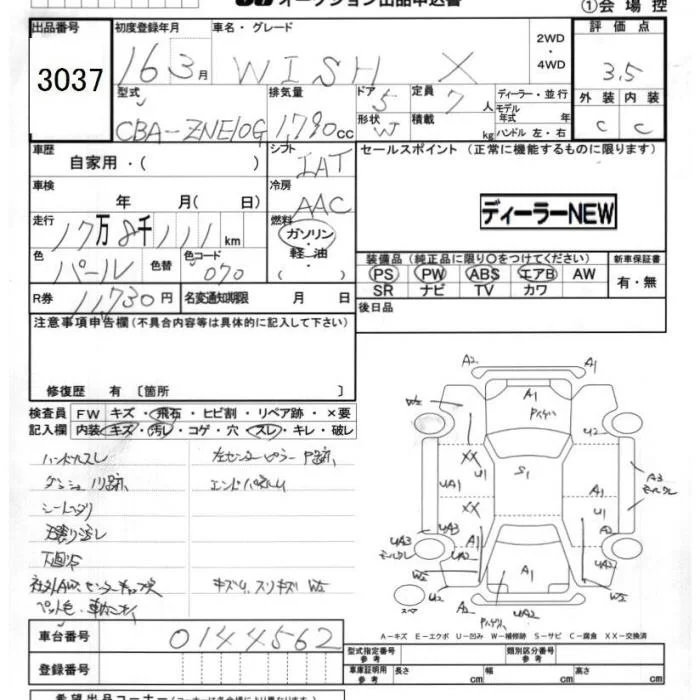 オークション出品申込書
①会場控
出品番号 初度登録年月 車名・グレード 2WD・4WD 評価点
3037 16 3月 WISH X 3.5
型式 排気量 ドア 5 定員 7人 ディーラー・並行 外装 内装
CBA-ZNE10G 1790cc 形状 W 積載 kg モデル年式 年 ハンドル 左・右 C C
車歴 自家用・( ) シフト IAT セールスポイント (正常に機能するものに限ります)
車検 年 月( 日) 冷房 AAC
ディーラーNEW
走行 17万8千111km 燃料 ガソリン・軽油・( )
色 パール 色替 色コード 070
装備品 (純正品に限り○をつけてください) 新車保証書
PS PW ABS エアB AW 有・無
SR ナビ TV カワ
R券 11730円 名変通知期限 月 日 後日品
注意事項申告欄 (不具合内容等は具体的に記入して下さい)
修復歴 有 〔箇所 〕
検査員記入欄 FW キズ・飛石・ヒビ割・リペア跡・×要
内装 キズ・汚レ・コゲ・穴・スレ・キレ・破レ
ハンドルスレ
下廻り
A2 A1
W2 A1 U2
XX U1 S1
UA1 A1 A3
XX U1 UA2
UA3 A1 A1
UA2
W2 A2 UA2
A-キズ E-エクボ U-凹み W-補修跡 S-サビ C-腐食 XX-交換済
車台番号 0144562
登録番号
型式指定番号 参考 類別区分番号 参考
車庫証明用 参考 長さ cm 幅 cm 高さ cm
希望出品コーナー